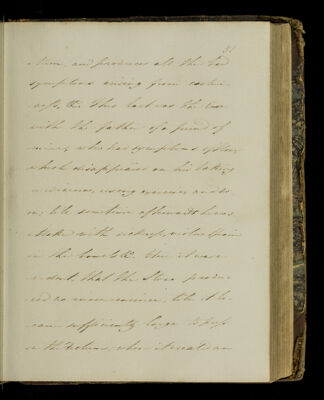 31
and produces all the bad
symptoms arising from costive-
ness, &c. This last was the case
with the father of a friend of
mine, who had symptoms of Stone
which disappeared on his taking
medicines, using exercise, and so
on, till sometime afterwards he was
attacked with violent pain
in the bowels &c. Here it was e-
vident, that the Stone produ-
ced no inconvenience, till it be-
came sufficiently large to press
on the Rectum, when it created an